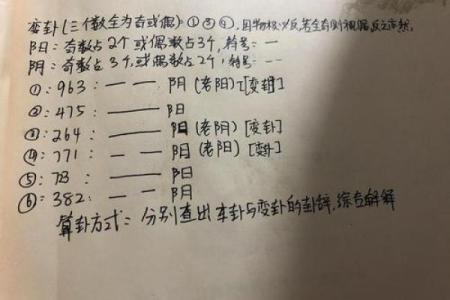 变卦(三个数全为奇或偶) ①③④, 因物极必反, 若全奇则视偶, 反之亦然.
阳日: 奇数占2个或偶数占3个, 符号: —
阴: 奇数占3个, 或偶数占2个, 符号: - -
①: 963: — — 阴(老阳)[变卦]
②: 475: —— 阳
③: 264: —— 阳(老阴)[变卦]
④: 771: — — 阴(老阳)[变卦]
⑤: 78 : —— 阳
⑥: 382: — — 阴
算卦方式: 分别查出本卦与变卦的卦辞, 综合解释